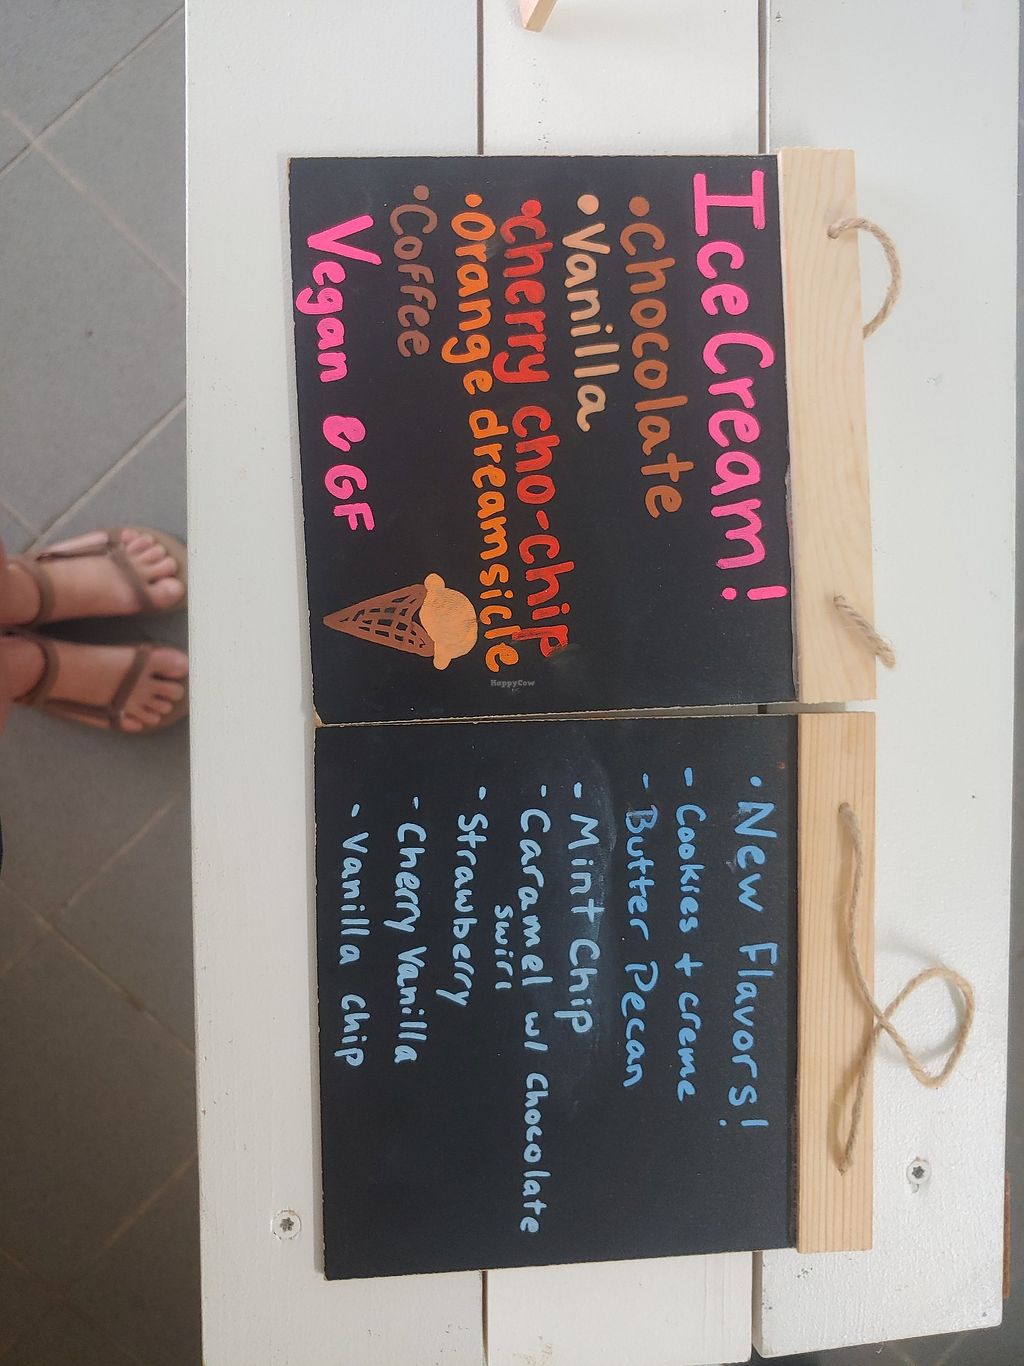 Ice Cream!
• Chocolate
• Vanilla
• cherry cho-chip
• orange dreamsicle
• Coffee
Vegan & GF
HappyCow
• New Flavors!
- Cookies + creme
- Butter Pecan
- Mint Chip
- Caramel w/ Chocolate
swirl
- Strawberry
- Cherry Vanilla
- Vanilla Chip